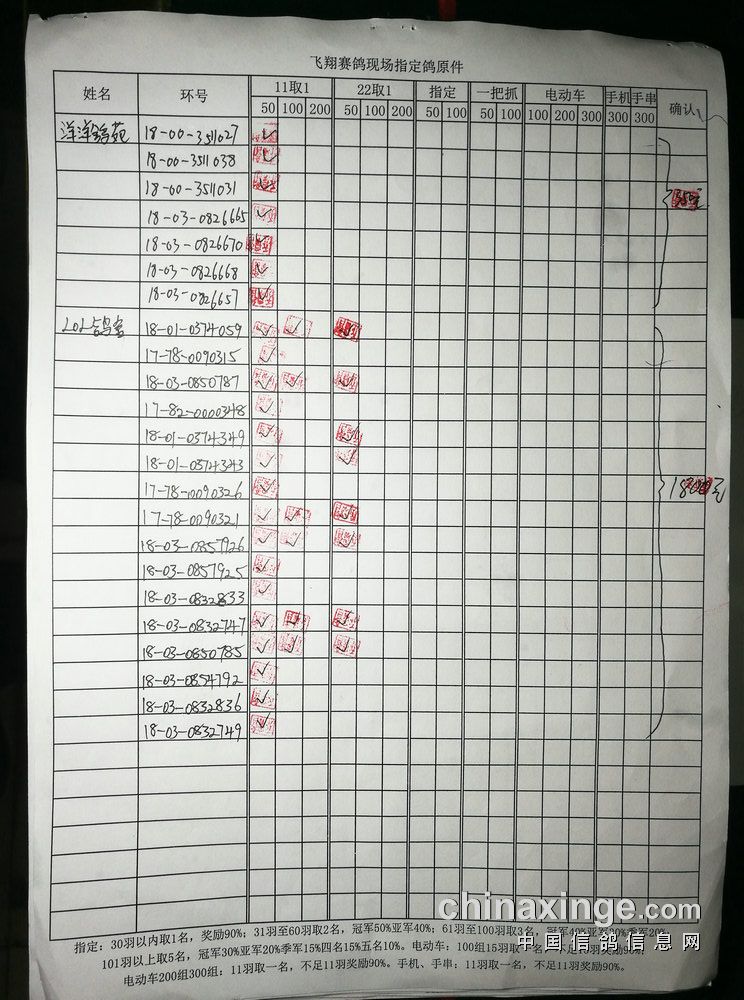 飞翔赛鸽现场指定鸽原件
姓名 环号 11取1 22取1 指定 一把抓 电动车 手机 手串 确认
50 100 200 50 100 200 50 100 50 100 100 200 300 300 300
洋洋鸽苑 18-00-3511027 ✓
18-00-3511038 ✓
18-00-3511031 ✓
18-03-0826665 ✓
18-03-0826670 ✓
18-03-0826668 ✓
18-03-0826657 ✓
350元
LOL鸽舍 18-01-0374059 ✓ ✓ ✓
17-78-0090315 ✓
18-03-0850787 ✓ ✓ ✓
17-82-0000348 ✓
18-01-0374349 ✓ ✓
18-01-0374343 ✓ ✓
17-78-0090326 ✓
1800元
17-78-0090321 ✓ ✓ ✓
18-03-0857926 ✓ ✓ ✓
18-03-0857925 ✓
18-03-0832833 ✓
18-03-0832747 ✓ ✓ ✓
18-03-0850785 ✓ ✓ ✓
18-03-0854792 ✓
18-03-0832836 ✓
18-03-0832749 ✓
指定：30羽以内取1名，奖励90%；31羽至60羽取2名，冠军50%亚军40%；61羽至100羽取3名，冠军40%亚军30%季军20%
101羽以上取5名，冠军30%亚军20%季军15%四名15%五名10%。电动车：100组15羽取一名，不足15羽奖励90%，
电动车200组300组：11羽取一名，不足11羽奖励90%。手机、手串：11羽取一名，不足11羽奖励90%。
chinaxinge.com
中国信鸽信息网